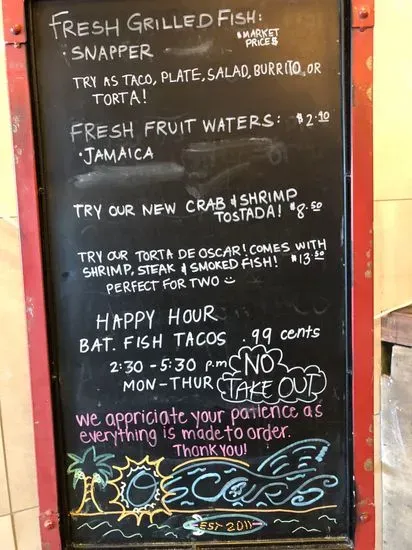 FRESH GRILLED FISH:
• SNAPPER
*MARKET
PRICE$
TRY AS TACO, PLATE, SALAD, BURRITO, OR
TORTA!
FRESH FRUIT WATERS: $2.90
• JAMAICA
TRY OUR NEW CRAB & SHRIMP
TOSTADA! $8.50
TRY OUR TORTA DE OSCAR! COMES WITH
SHRIMP, STEAK & SMOKED FISH! $13.50
PERFECT FOR TWO
HAPPY HOUR
BAT. FISH TACOS .99 cents
2:30 - 5:30 P.m
MON-THUR
NO
TAKE OUT
we appriciate your patience as
everything is made to order.
Thank you!
OSCARS
EST 2011